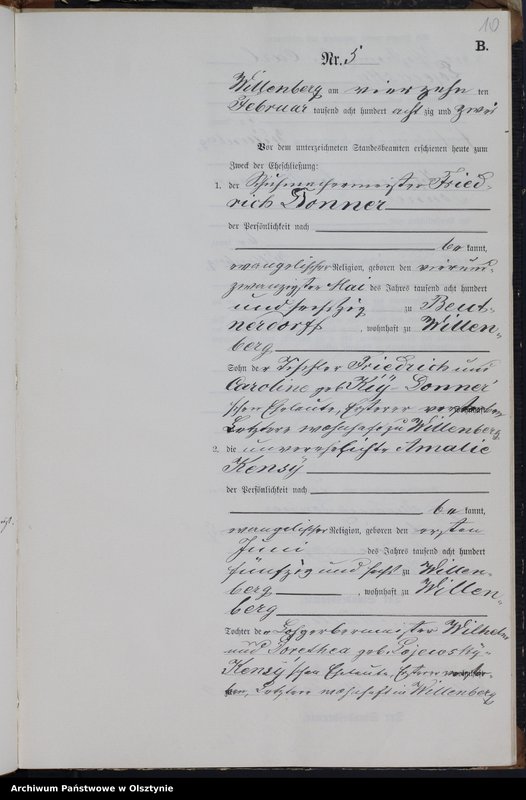 10
B.
Nr. 5
Willenberg am vierzehn ten
Februar tausend acht hundert acht zig und zwei
Vor dem unterzeichneten Standesbeamten erschienen heute zum
Zweck der Eheschließung:
1. der Schuhmachermeister Fried-
rich Donner
der Persönlichkeit nach
be kannt,
evangelischer Religion, geboren den vierund-
zwanzigsten Mai des Jahres tausend acht hundert
und sechszig zu Beut-
nerdorf, wohnhaft zu Willen-
berg
Sohn der Tischler Friedrich und
Caroline geb. Donner'
schen Eheleute, Ersterer verstorben
Letztere wohnhaft zu Willenberg
2. die unverehelichte Amalie
Kensy
der Persönlichkeit nach
be kannt,
evangelischer Religion, geboren den ersten
Juni des Jahres tausend acht hundert
fünfzig und sechs zu Willen-
berg, wohnhaft zu Willen-
berg
Tochter der Lohgerbermeister Wilhelm
und Dorothea geb. Gojewsky-
Kensy'schen Eheleute, Ersterer verstor-
ben, Letztere wohnhaft in Willenberg
Archiwum Państwowe w Olsztynie